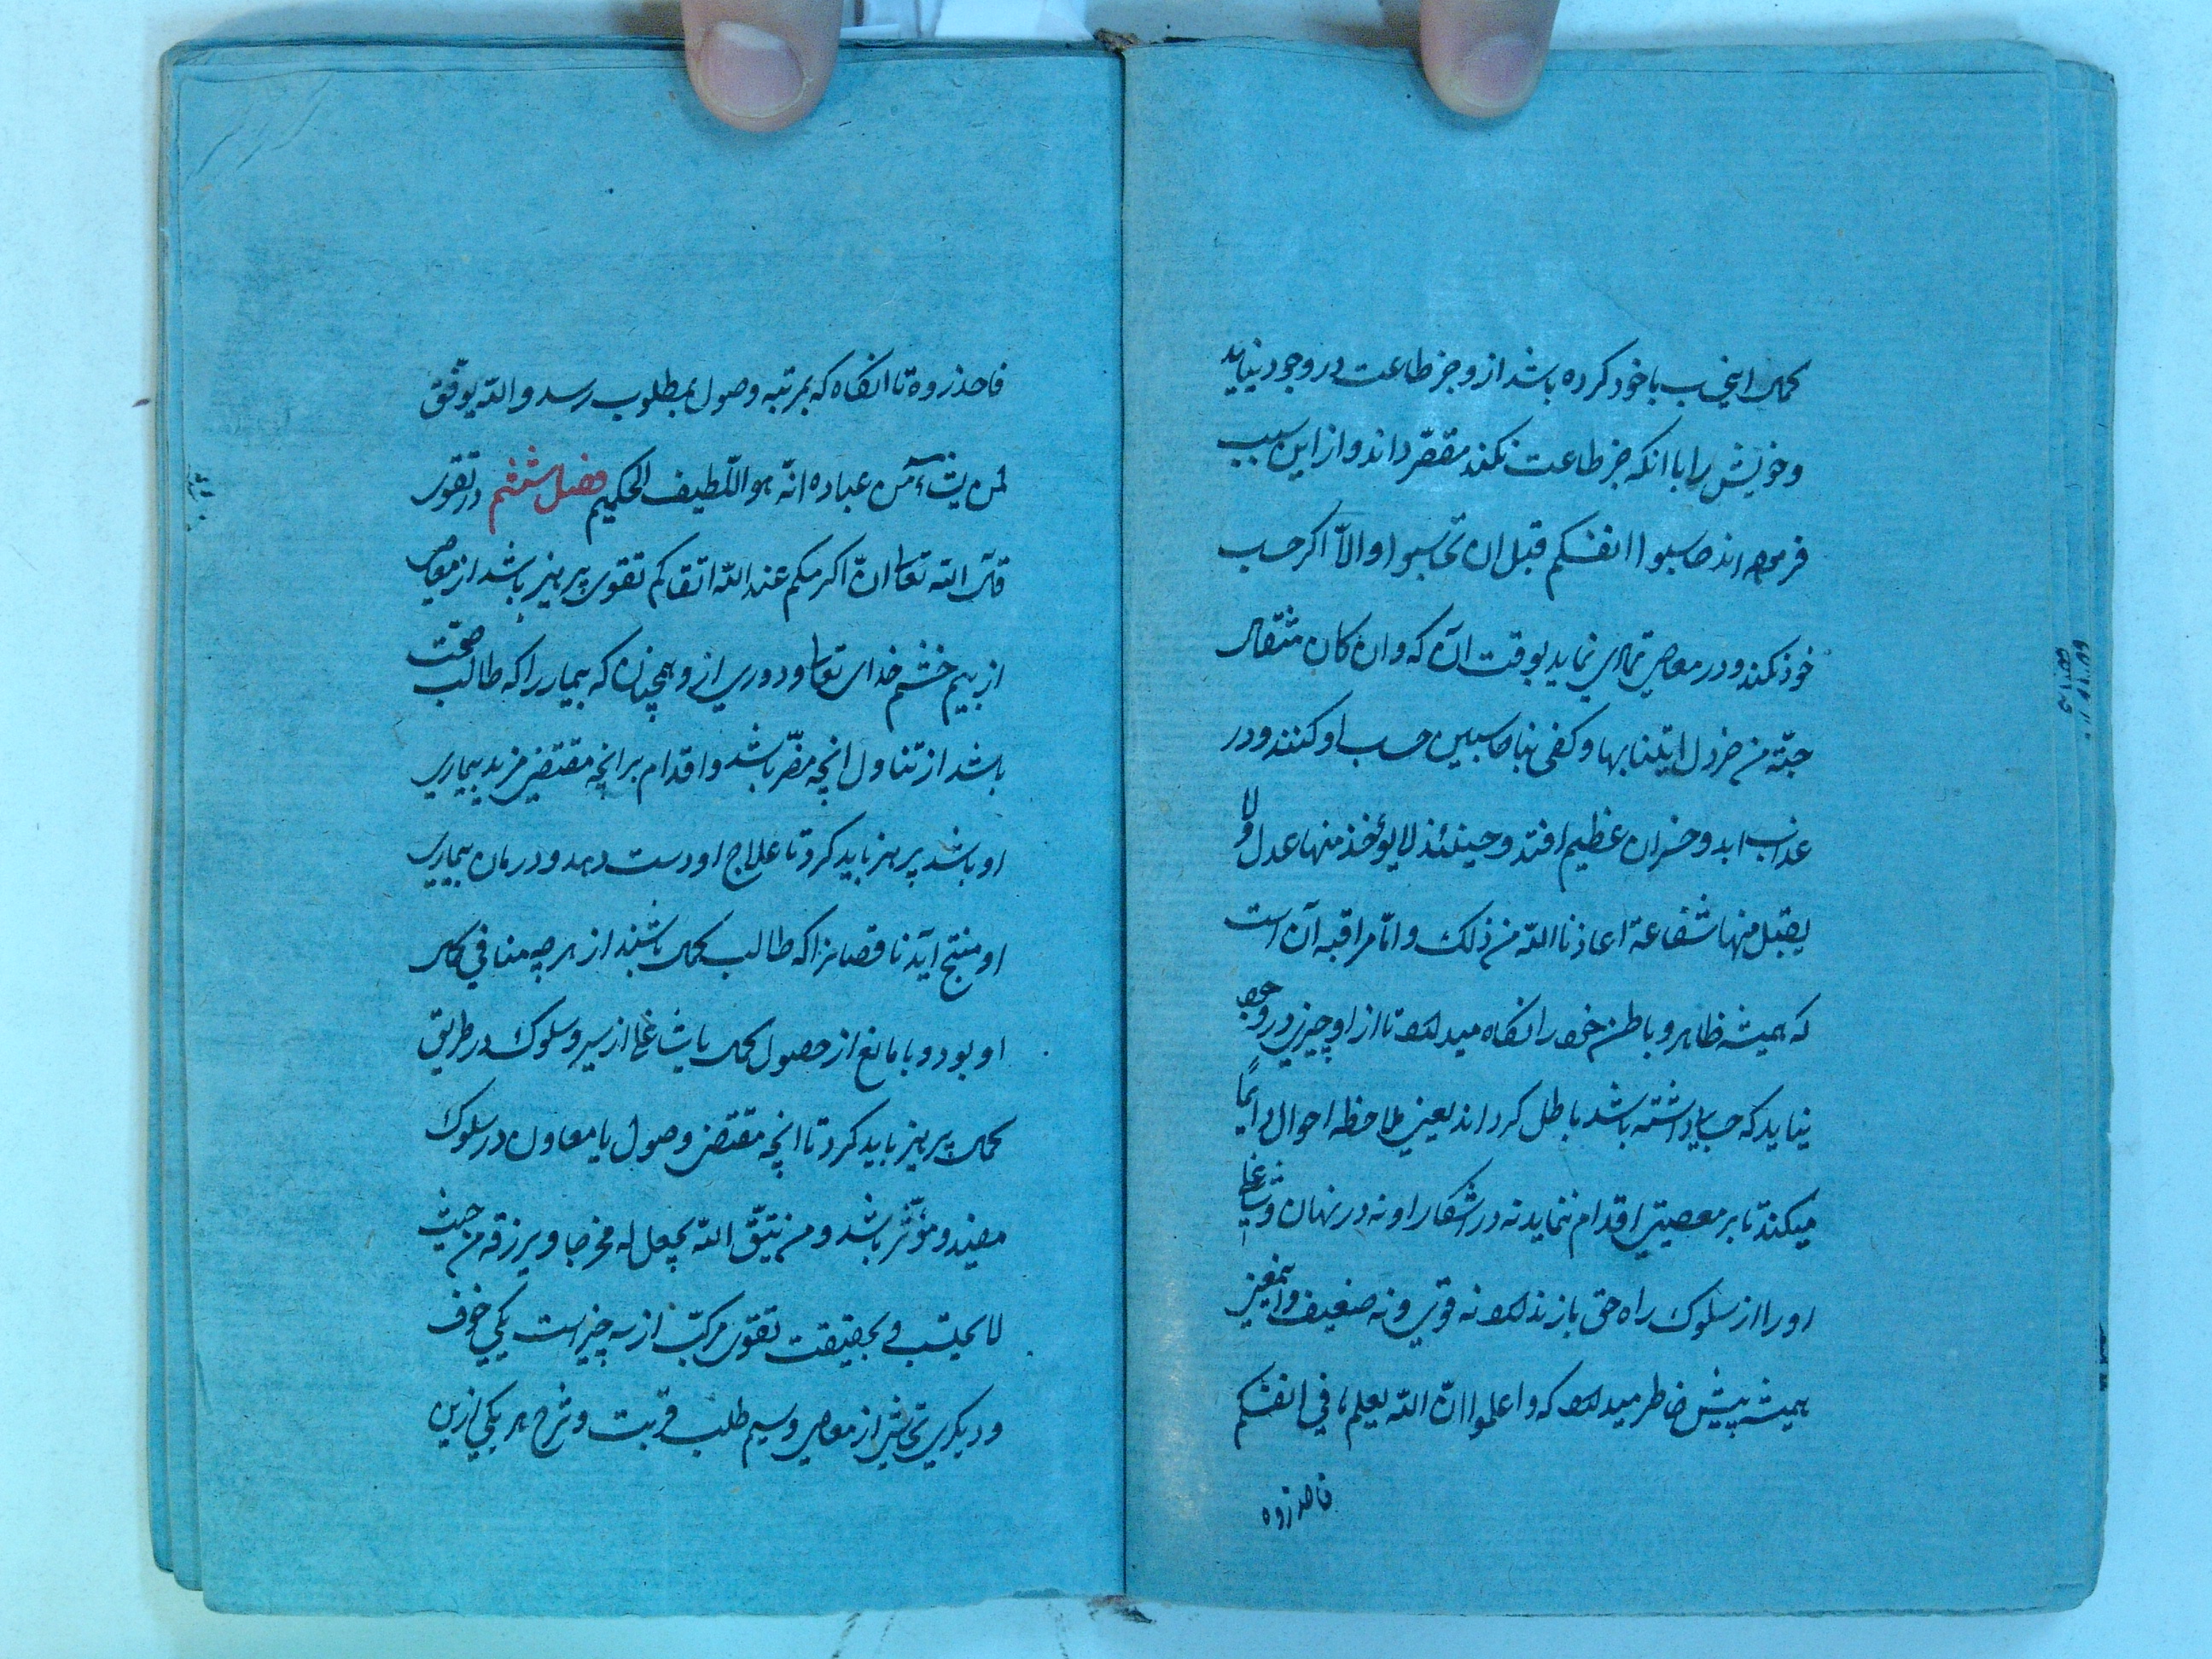 کسی این حساب با خود کرده باشد از و جز طاعت در وجود نیاید
و خویش را با انکه جز طاعت نکند مقصّر داند و از این سبب
فرموده اند حاسبوا انفسکم قبل ان تحاسبوا و الاّ اکر حساب
خود نکند و در معاصی تمادی نماید بوقت آن که و ان کان مثقال
حبّة من خردل اتینا بها و کفی بنا حاسبین حساب او کنند و در
عذاب ابد و خسران عظیم افتد و حینئذ لا یؤخذ منها عدل و لا
یقبل منها شفاعة اعاذنا اللّه من ذلک و امّا مراقبه آن است
که همیشه ظاهر و باطن خود را نکاه میدارد تا از او چیزی در وجود
نیاید که حسابی داشته باشد باطل کرداند یعنی ملاحظه احوال دایمًا
میکند تا بر معصیتی اقدام ننماید نه در اشکارا و نه در نهان و شاغلی
او را از سلوک راه حق باز ندارد نه قوی و نه ضعیف و این معنی
همیشه پیش خاطر میدارد که و اعلموا انّ اللّه یعلم ما فی انفسکم
فاحذروه
فاحذروه تا انکاه که بمرتبه وصول بمطلوب رسد و اللّه یوفّق
لمن یشآء من عباده انّه هو اللّطیف الحکیم فصل ششم در تقوی
قال اللّه تعالی انّ اکرمکم عند اللّه اتقاکم تقوی پرهیز باشد از معاصی
از بیم خشم خدای تعالی و دوری از و همچنان که بیمار را که طالب صحّت
باشد از تناول انچه مضرّ باشد و اقدام بر انچه مقتضی مزید بیماری
او باشد پرهیز باید کرد تا علاج او دست دهد و درمان بیماری
او منتج آید ناقصانرا که طالب کمال باشند از هر چه منافی کمال
او بود و یا مانع از حصول کمال یا شاغل از سیر و سلوک در طریق
کمال پرهیز باید کرد تا انچه مقتضی وصول یا معاون در سلوک
مفید و مؤثّر باشد و من یتّق اللّه یجعل له مخرجا و یرزقه من حیث
لا یحتسب و بحقیقت تقوی مرکّب از سه چیز است یکی خوف
و دیکری تحاشی از معاصی و سیم طلب قربت و شرح هر یکی ازین